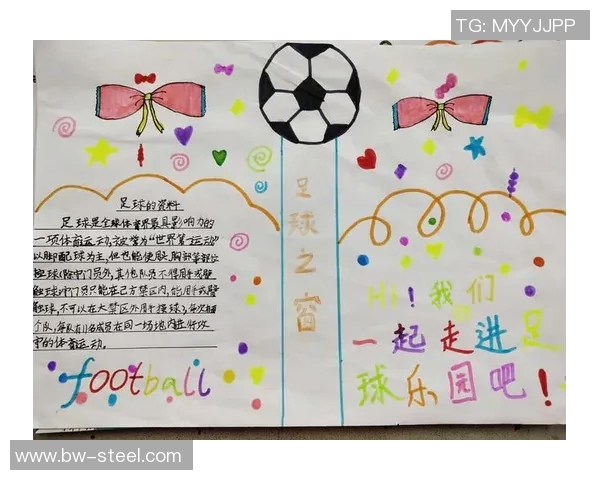 TG: MYYJJPP
足球的资料
足球是全球体育界最具影响力的
一项体育运动,被誉为“世界第一运动”
以脚配球为主,他也能使用头、胸部等部位
触球(除守门员外,其他队员不得用手或臂
触球,守门员只能在己方禁区内,能用手或臂
触球,不可以在大禁区外用手接球),每次有2
个队,每队有11名成员在同一场地内进行攻
守的体育运动。
football
足球之窗
Hi!我们
一起走进足
球乐园吧!
www.bw-steel.com